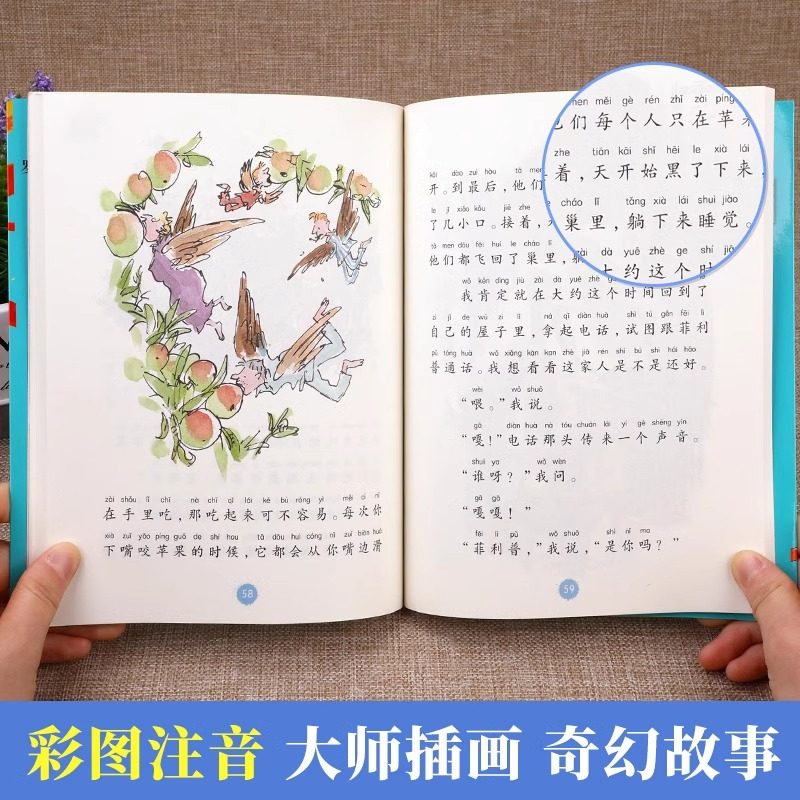 zài shǒu lǐ chī nà chī qǐ lái kě bù róng yì měi cì nǐ
在手里吃，那吃起来可不容易。每次你
xià zuǐ yǎo píng guǒ de shí hou tā dōu huì cóng nǐ zuǐ biān huá
下嘴咬苹果的时候，它都会从你嘴边滑
58
kāi dào zuì hòu tā men
开。到最后，他们
le jǐ xiǎo kǒu jiē zhe
了几小口。接着，
tā men dōu fēi huí le cháo lǐ
他们都飞回了巢里，
wǒ kěn dìng jiù zài dà yuē zhè ge shí jiān huí dào le
我肯定就在大约这个时间回到了
zì jǐ de wū zi lǐ ná qǐ diàn huà shì tú gēn fēi lì
自己的屋子里，拿起电话，试图跟菲利
pǔ tōng huà wǒ xiǎng kàn kan zhè jiā rén shì bú shì hái hǎo
普通话。我想看看这家人是不是还好。
wèi wǒ shuō
“喂。”我说。
gā diàn huà nà tóu chuán lái yí gè shēng yīn
“嘎！”电话那头传来一个声音。
shuí ya wǒ wèn
“谁呀？”我问。
gā gā
“嘎嘎！”
fēi lì pǔ wǒ shuō shì nǐ ma
“菲利普，”我说，“是你吗？”
59
men měi gè rén zhǐ zài píng
们每个人只在苹
zhe tiān kāi shǐ hēi le xià lái
着，天开始黑了下来，
cháo lǐ tǎng xià lái shuì jiào
巢里，躺下来睡觉。
dà yuē zhè ge shí
大约这个时
彩图注音 大师插画 奇幻故事